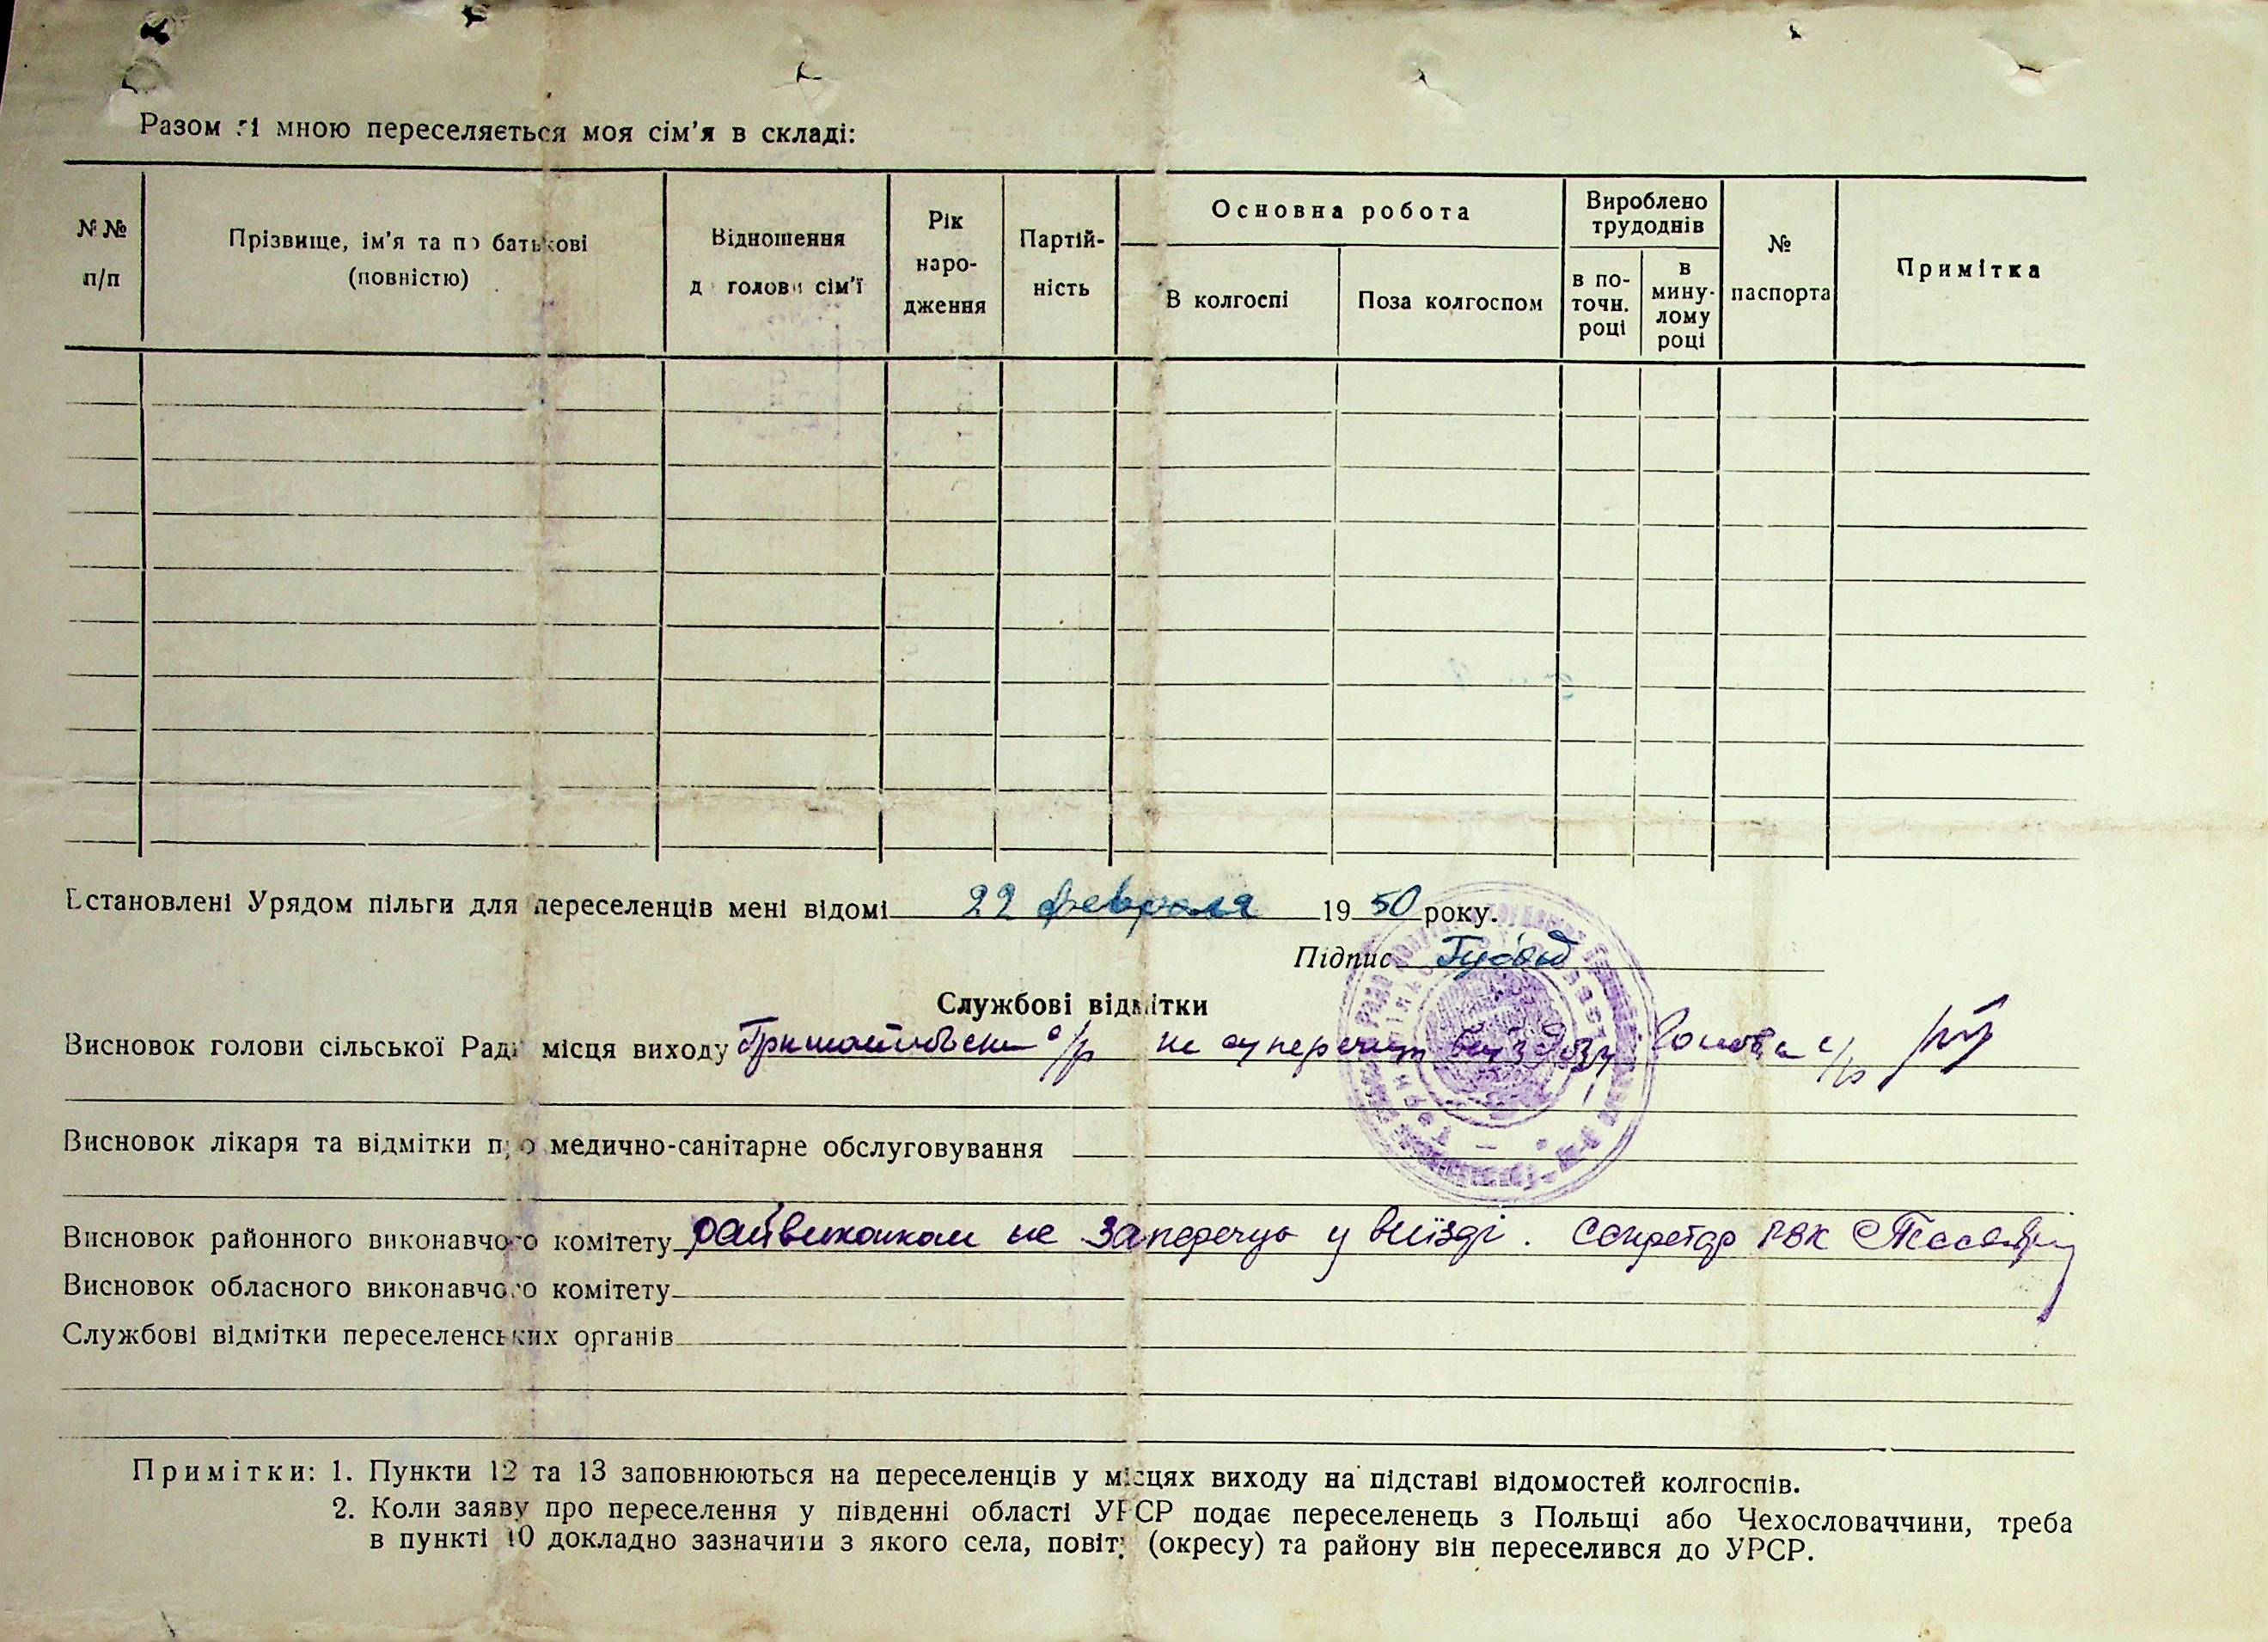 Разом зі мною переселяється моя сім'я в складі:
№№ п/п
Прізвище, ім'я та по батькові (повністю)
Відношення до голови сім'ї
Рік народження
Партійність
Основна робота
В колгоспі
Поза колгоспом
Вироблено трудоднів
в поточн. році
в минулому році
№ паспорта
Примітка
Встановлені Урядом пільги для переселенців мені відомі 22 февраля 1950 року.
Підпис
Службові відмітки
Висновок голови сільської Ради місця виходу с/р не суперечит виїзду Голова с/р
Висновок лікаря та відмітки про медично-санітарне обслуговування
Висновок районного виконавчого комітету райвиконком не заперечує у виїзді. Секретар РВК
Висновок обласного виконавчого комітету
Службові відмітки переселенських органів
Примітки: 1. Пункти 12 та 13 заповнюються на переселенців у місцях виходу на підставі відомостей колгоспів.
2. Коли заяву про переселення у південні області УРСР подає переселенець з Польщі або Чехословаччини, треба
в пункті 10 докладно зазначити з якого села, повіту (окресу) та району він переселився до УРСР.